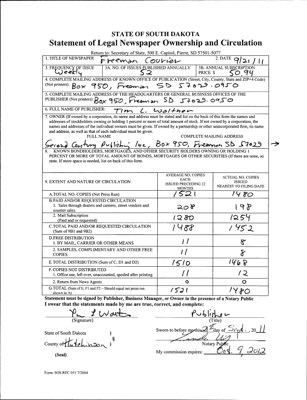 STATE OF SOUTH DAKOTA
Statement of Legal Newspaper Ownership and Circulation
Return to: Secretary of State, 500 E. Capitol, Pierre, SD 57501-5077
1. TITLE OF NEWSPAPER Freeman Courier 2. DATE 9/21/11
3. FREQUENCY OF ISSUE Weekly 3A. NO. OF ISSUES PUBLISHED ANNUALLY 52 3B. ANNUAL SUBSCRIPTION PRICE $ 50.94
4. COMPLETE MAILING ADDRESS OF KNOWN OFFICE OF PUBLICATION (Street, City, County, State and ZIP+4 Code)
(Not printers) Box 950, Freeman SD 57029-0950
5. COMPLETE MAILING ADDRESS OF THE HEADQUARTERS OR GENERAL BUSINESS OFFICES OF THE
PUBLISHER (Not printers) Box 950, Freeman SD 57029-0950
6. FULL NAME OF PUBLISHER: Tim L. Waltner
7. OWNER (If owned by a corporation, its name and address must be stated and list on the back of this form the names and
addresses of stockholders owning or holding 1 percent or more of total amount of stock. If not owned by a corporation, the
names and addresses of the individual owners must be given. If owned by a partnership or other unincorporated firm, its name
and address, as well as that of each individual must be given.
FULL NAME COMPLETE MAILING ADDRESS
Second Century Publishing Inc, Box 950, Freeman SD 57029
8. KNOWN BONDHOLDERS, MORTGAGEES, AND OTHER SECURITY HOLDERS OWNING OR HOLDING 1
PERCENT OR MORE OF TOTAL AMOUNT OF BONDS, MORTGAGES OR OTHER SECURITIES (If there are none, so
state. If more space is needed, list on back of this form)
9. EXTENT AND NATURE OF CIRCULATION
AVERAGE NO. COPIES EACH ISSUED PRECEDING 12 MONTHS
ACTUAL NO. COPIES ISSUED NEAREST TO FILING DATE
A. TOTAL NO. COPIES (Net Press Run) 1521 1480
B. PAID AND/OR REQUESTED CIRCULATION
1. Sales through dealers and carriers, street vendors and counter sales 208 198
2. Mail Subscription (Paid and/or requested) 1280 1254
C. TOTAL PAID AND/OR REQUESTED CIRCULATION (Sum of 9B1 and 9B2) 1488 1452
D. FREE DISTRIBUTION
1. BY MAIL, CARRIER OR OTHER MEANS 11 8
2. SAMPLES, COMPLIMENTARY AND OTHER FREE COPIES 11 8
E. TOTAL DISTRIBUTION (Sum of C, D1 and D2) 1510 1468
F. COPIES NOT DISTRIBUTED
1. Office use, left over, unaccounted, spoiled after printing 11 12
2. Return from News Agents 0 0
G. TOTAL (Sum of E, F1 and F2 - Should equal net press run shown in A) 1521 1480
Statement must be signed by Publisher, Business Manager, or Owner in the presence of a Notary Public
I swear that the statements made by me are true, correct, and complete:
Publisher
(Signature) (Title)
State of South Dakota )
County of Hutchinson ) §
Sworn to before me this 21st day of Sept., 2011
Notary Public
(Seal) My commission expires: Oct. 9, 2012
Form: SOS REC 051 7/2004